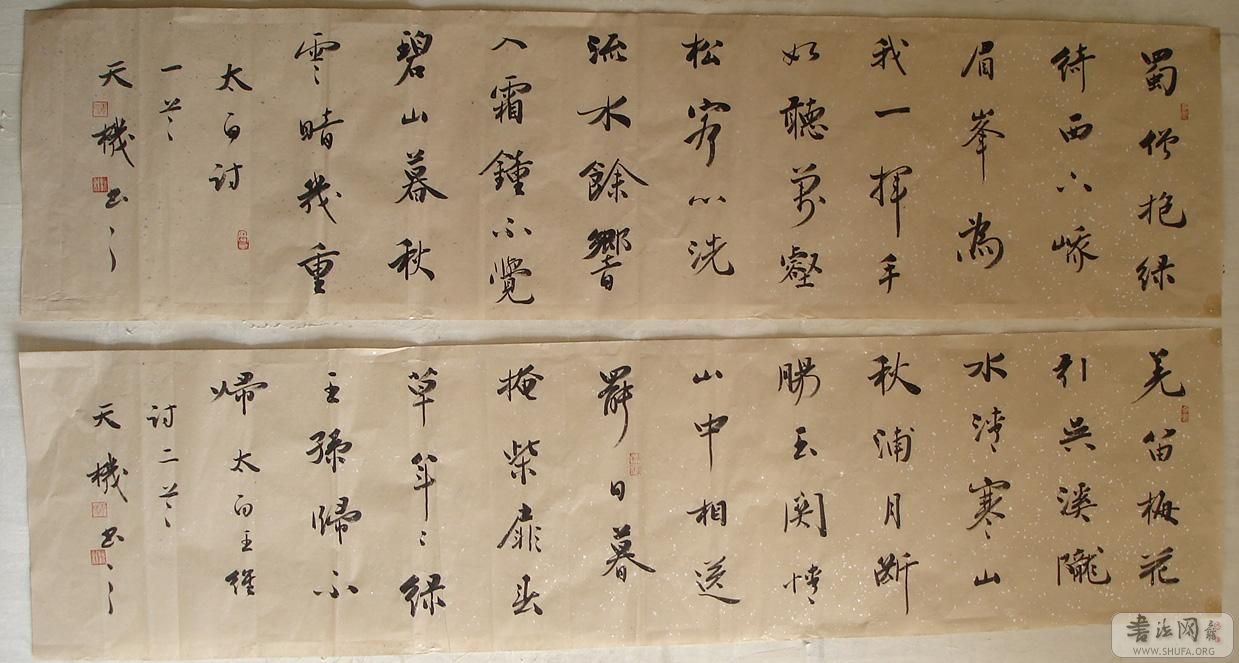 蜀僧抱绿
绮西下峨
眉峯為
我一揮手
如聽萬壑
松客心洗
流水餘響
入霜鐘不覺
碧山暮秋
雲暗幾重
太白詩
一首
天機书之
羌笛梅花
引吴溪隴
水清寒山
秋浦月断
腸玉関情
山中相送
罷日暮
掩柴扉春
草年々绿
王孫歸不
歸太白王維
詩二首
天機书之
書法网
WWW.SHUFA.ORG